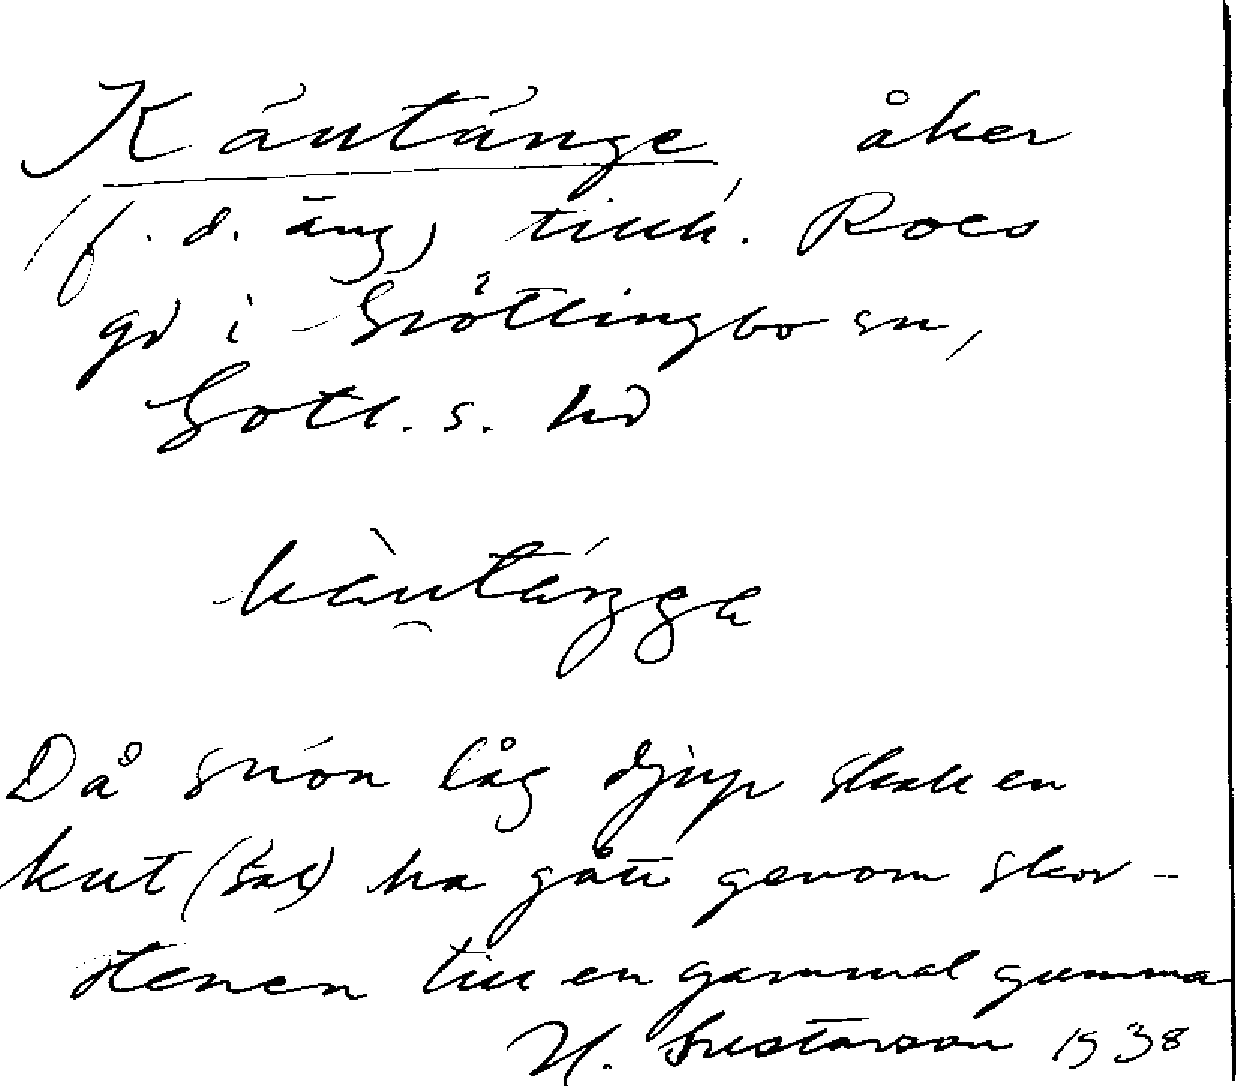 Káutánge åker
(f. d. äng) tillh. Roes
gd i Grötlingbo sn,
Gotl. s. hd
Då snön låg djup skall en
kut (säl) ha gått genom skor-
stenen till en gammal gumma
H. Gustavson 1938